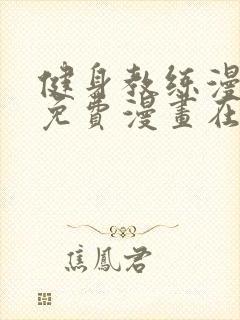 健身教练漫
免費漫畫在
焦鳳君